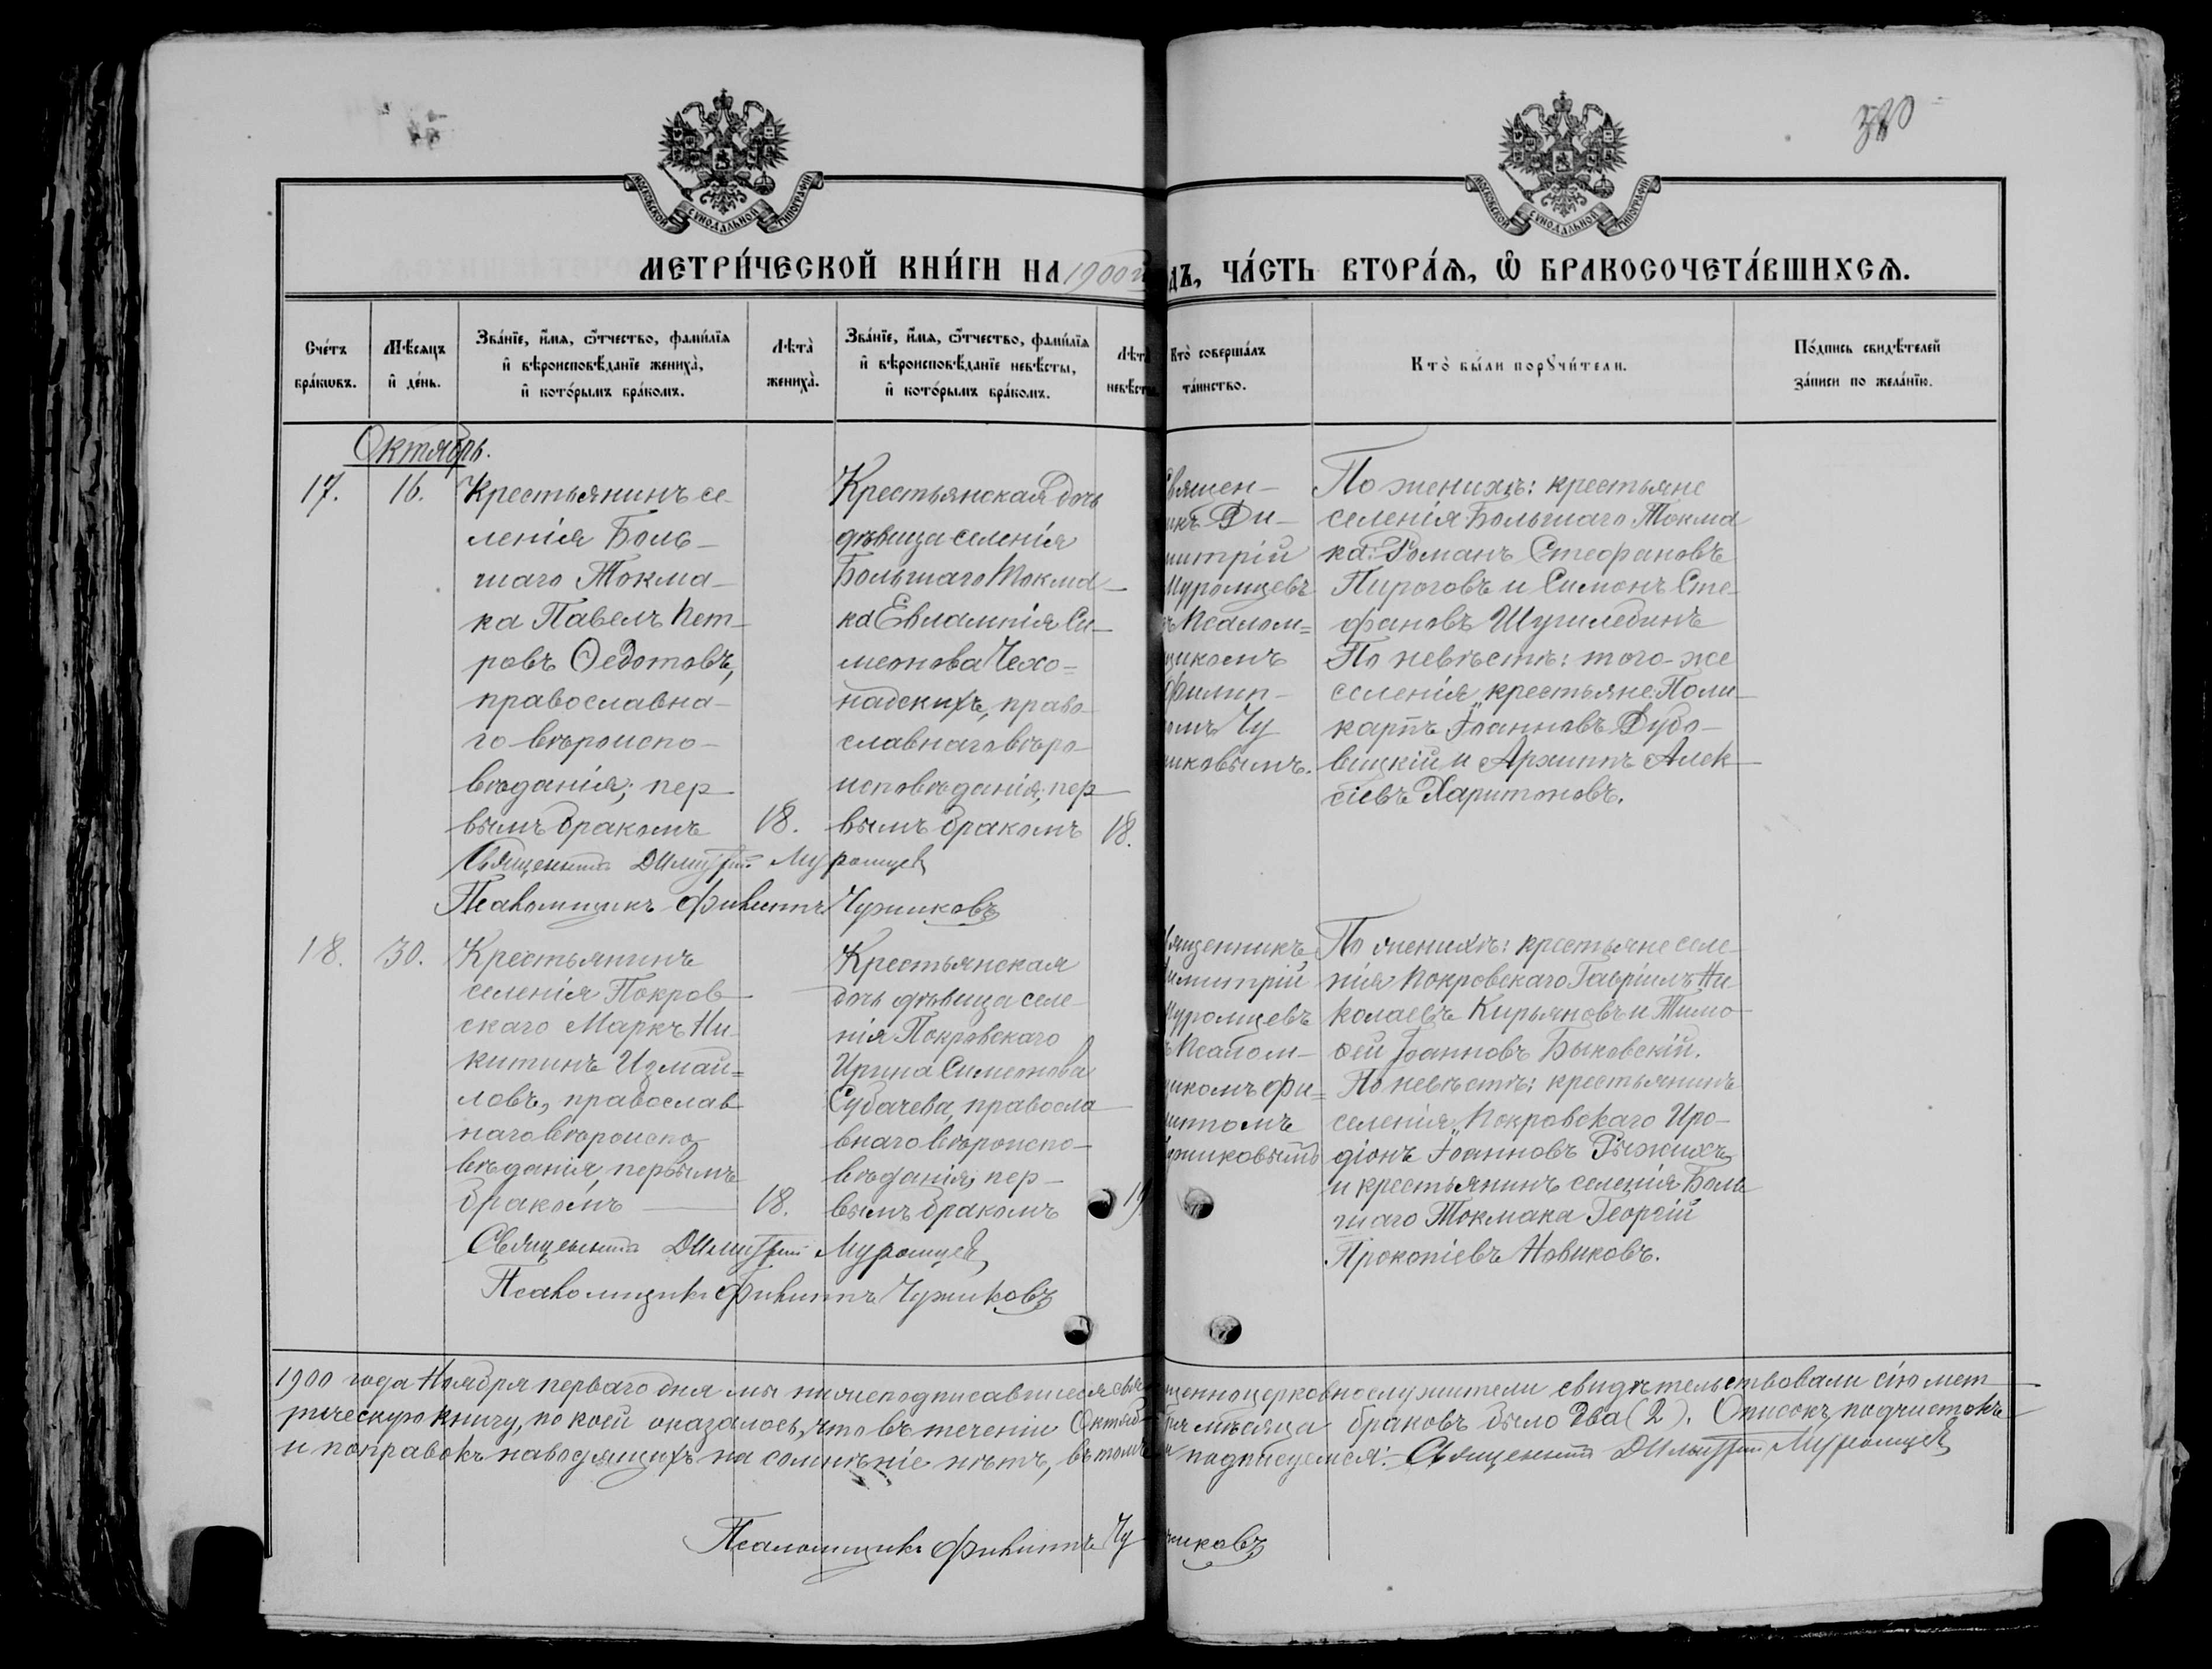 380
МОСКОВСКОЙ СѴНОДАЛЬНОЙ ТИПОГРАФІИ
МОСКОВСКОЙ СѴНОДАЛЬНОЙ ТИПОГРАФІИ
МЕТРИ́ЧЕСКОЙ КНИ́ГИ НА 1900й
ДЪ, ЧА́СТЬ ВТОРА́Я, Ѽ БРАКОСОЧЕТА́ВШИХСЯ.
Сче́тъ
бра́кωвъ.
Мѣ́сяцъ
и҆ де́нь.
Зва́нїе, и҆́мя, ѻ҆́тчество, фами́лїя
и҆ вѣроисповѣ́данїе жениха̀,
и҆ кото́рымъ бра́комъ.
Лѣ́та̀
жениха̀.
Зва́нїе, и҆́мя, ѻ҆́тчество, фами́лїя
и҆ вѣроисповѣ́данїе невѣ́сты,
и҆ кото́рымъ бра́комъ.
Лѣта
невѣсты
Кто̀ соверша́лъ
та́инство.
Кто̀ бы́ли порꙋчи́тели.
По́дпись свидѣ́телей
за́писи по жела́нїю.
Октябрь.
17.
16.
Крестьянинъ се-
ленія Боль-
шаго Токма-
ка Павелъ Пет-
ровъ Ѳедотовъ,
православна-
го вѣроиспо-
вѣданія; пер-
вымъ бракомъ
18.
Крестьянская дочь
дѣвица селенія
Большаго Токма-
ка Евлампія Си-
меонова Чехо-
надскихъ, право-
славнаго вѣро-
исповѣданія; пер-
вымъ бракомъ
18.
Священ-
икъ Ди-
митрій
Муромцевъ
ъ Псалом=
щикомъ
Филип-
омъ Чу
иковымъ.
По женихѣ: крестьяне
селенія Большаго Токма
ка: Романъ Стефановъ
Пироговъ и Симонъ Сте-
фановъ Шушлебинъ
По невѣстѣ: того-же
селенія крестьяне: Поли-
карпъ Іоанновъ Дубо-
вицкій и Архиппъ Алек-
сіевъ Харитоновъ.
Священникъ Димитрій Муромцев
Псаломщикъ Филиппъ Чужиковъ
18.
30.
Крестьянинъ
селенія Покров-
скаго Маркъ Ни-
китинъ Измай=
ловъ, православ-
наго вѣроиспо-
вѣданія, первымъ
бракомъ
18.
Крестьянская
дочь дѣвица селе-
нія Покровскаго
Ирина Симеонова
Субачева, правосла-
внаго вѣроиспо-
вѣданія; пер-
вымъ бракомъ
19.
вященникъ
Димитрій
Муромцевъ
ъ Псалом-
щикомъ Фи=
липпомъ
Чужиковымъ
По женихѣ: крестьяне селе-
нія Покровскаго Гавріилъ Ни-
колаевъ Кирьяновъ и Тимо-
ѳей Іоанновъ Быковскій.
По невѣстѣ: крестьянинъ
селенія Покровскаго Иро-
діонъ Іоанновъ Рыжихъ
и крестьянинъ селенія Боль-
шаго Токмака Георгій
Прокопіевъ Новиковъ.
Священникъ Димитрій Муромцев
Псаломщикъ Филиппъ Чужиковъ
1900 года Ноября перваго дня мы нижеподписавшіеся священноцерковнослужители свидѣтельствовали сію мет-
рическую книгу, по коей оказалось, что въ теченіи Октября мѣсяца браковъ было два (2). Описокъ, подчистокъ
и поправокъ наводящихъ на сомнѣніе нѣтъ, въ томъ и подписуемся: Священникъ Димитрій Муромцев
Псаломщикъ Филиппъ Чужиковъ